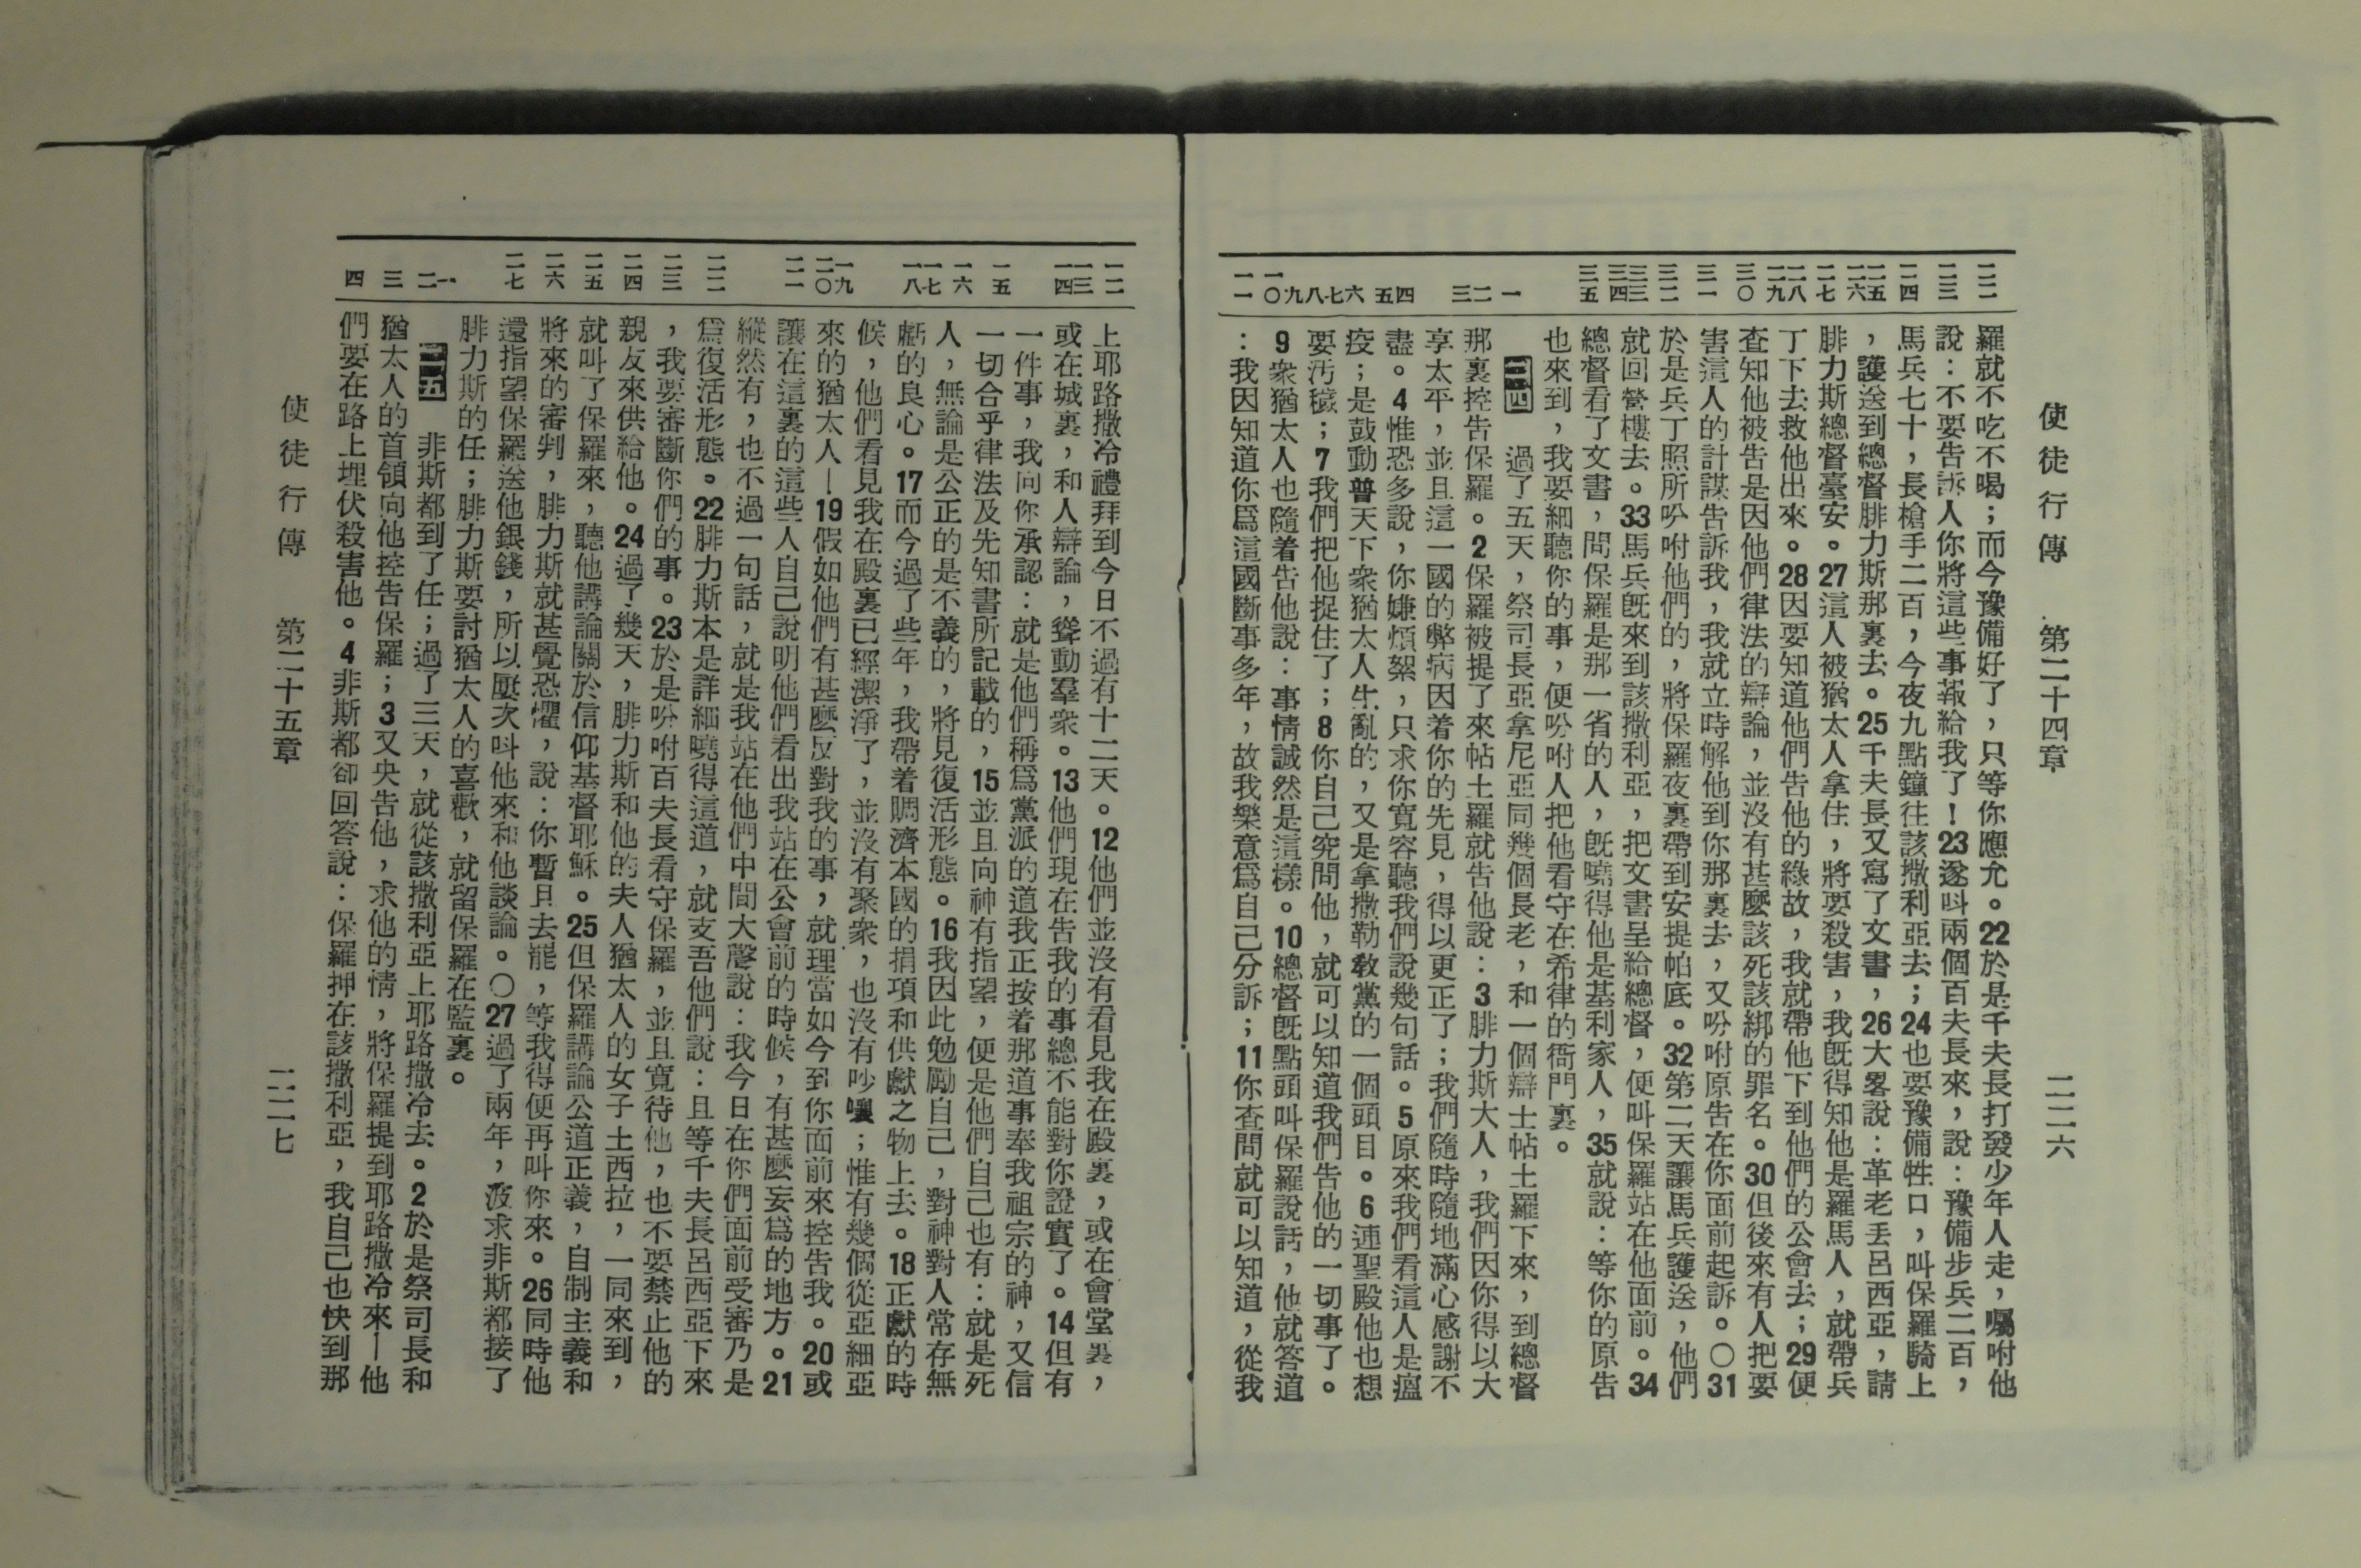 使徒行傳 第二十四章 二二六
二二 二三 二四 二五 二六 二七 二八 二九 三〇 三一 三二 三三 三四 三五 一 二 三 四 五 六 七 八 九 一〇 一一
羅就不吃不喝；而今豫備好了，只等你應允。22於是千夫長打發少年人走，囑咐他
說：不要告訴人你將這些事報給我了！23遂呌兩個百夫長來，說：豫備步兵二百，
馬兵七十，長槍手二百，今夜九點鐘往該撒利亞去；24也要豫備牲口，叫保羅騎上
，護送到總督腓力斯那裏去。25千夫長又寫了文書，26大畧說：革老丢呂西亞，請
腓力斯總督臺安。27這人被猶太人拿住，將要殺害，我旣得知他是羅馬人，就帶兵
丁下去救他出來。28因要知道他們告他的緣故，我就帶他下到他們的公會去；29便
查知他被告是因他們律法的辯論，並沒有甚麼該死該綁的罪名。30但後來有人把要
害這人的計謀告訴我，我就立時解他到你那裏去，又吩咐原告在你面前起訴。〇31
於是兵丁照所吩咐他們的，將保羅夜裏帶到安提帕底。32第二天讓馬兵護送，他們
就回營樓去。33馬兵旣來到該撒利亞，把文書呈給總督，便叫保羅站在他面前。34
總督看了文書，問保羅是那一省的人，旣曉得他是基利家人，35就說：等你的原告
也來到，我要細聽你的事，便吩咐人把他看守在希律的衙門裏。
二四 過了五天，祭司長亞拿尼亞同幾個長老，和一個辯士帖土羅下來，到總督
那裏控告保羅。2保羅被提了來帖土羅就告他說：3腓力斯大人，我們因你得以大
享太平，並且這一國的弊病因着你的先見，得以更正了；我們隨時隨地滿心感謝不
盡。4惟恐多說，你嫌煩絮，只求你寬容聽我們說幾句話。5原來我們看這人是瘟
疫；是鼓動普天下衆猶太人生亂的，又是拿撒勒敎黨的一個頭目。6連聖殿他也想
要汚穢；7我們把他捉住了；8你自己究問他，就可以知道我們告他的一切事了。
9衆猶太人也隨着告他說：事情誠然是這樣。10總督旣點頭叫保羅說話，他就答道
：我因知道你爲這國斷事多年，故我樂意爲自己分訴；11你查問就可以知道，從我
一二 一三 一四 一五 一六 一七 一八 一九 二〇 二一 二二 二三 二四 二五 二六 二七 一 二 三 四
上耶路撒冷禮拜到今日不過有十二天。12他們並沒有看見我在殿裏，或在會堂裏，
或在城裏，和人辯論，聳動羣衆。13他們現在告我的事總不能對你證實了。14但有
一件事，我向你承認：就是他們稱爲黨派的道我正按着那道事奉我祖宗的神，又信
一切合乎律法及先知書所記載的，15並且向神有指望，便是他們自己也有：就是死
人，無論是公正的是不義的，將見復活形態。16我因此勉勵自己，對神對人常存無
虧的良心。17而今過了些年，我帶着賙濟本國的捐項和供獻之物上去。18正獻的時
候，他們看見我在殿裏已經潔淨了，並沒有聚衆，也沒有吵嚷；惟有幾個從亞細亞
來的猶太人—19假如他們有甚麼反對我的事，就理當如今到你面前來控告我。20或
讓在這裏的這些人自己說明他們看出我站在公會前的時候，有甚麼妄爲的地方。21
縱然有，也不過一句話，就是我站在他們中間大聲說：我今日在你們面前受審乃是
爲復活形態。22腓力斯本是詳細曉得這道，就支吾他們說：且等千夫長呂西亞下來
，我要審斷你們的事。23於是吩咐百夫長看守保羅，並且寬待他，也不要禁止他的
親友來供給他。24過了幾天，腓力斯和他的夫人猶太人的女子土西拉，一同來到，
就叫了保羅來，聽他講論關於信仰基督耶穌。25但保羅講論公道正義，自制主義和
將來的審判，腓力斯就甚覺恐懼，說：你暫且去罷，等我得便再叫你來。26同時他
還指望保羅送他銀錢，所以屢次呌他來和他談論。〇27過了兩年，波求非斯都接了
腓力斯的任；腓力斯要討猶太人的喜歡，就留保羅在監裏。
二五 非斯都到了任；過了三天，就從該撒利亞上耶路撒冷去。2於是祭司長和
猶太人的首領向他控告保羅；3又央告他，求他的情，將保羅提到耶路撒冷來—他
們要在路上埋伏殺害他。4非斯都卻回答說：保羅押在該撒利亞，我自己也快到那
使徒行傳 第二十五章 二二七